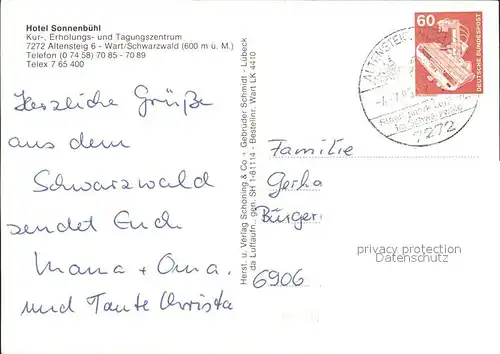 Hotel Sonnenbühl
Kur-, Erholungs- und Tagungszentrum
7272 Altensteig 6 - Wart/Schwarzwald (600 m ü. M.)
Telefon (0 74 58) 70 85 - 70 89
Telex 7 65 400
Herzliche Grüße
aus dem
Schwarzwald
sendet Euch
Mama + Oma.
und Tante Christa
Herst. u. Verlag Schöning & Co + Gebrüder Schmidt - Lübeck
da Luftaufn. gen. SH 1-81114 - Bestellnr. Wart LK 4410
60
DEUTSCHE BUNDESPOST
ALTENSTEI
7272
Familie
Gerha
Bürger
6906
privacy protection
Datenschutz